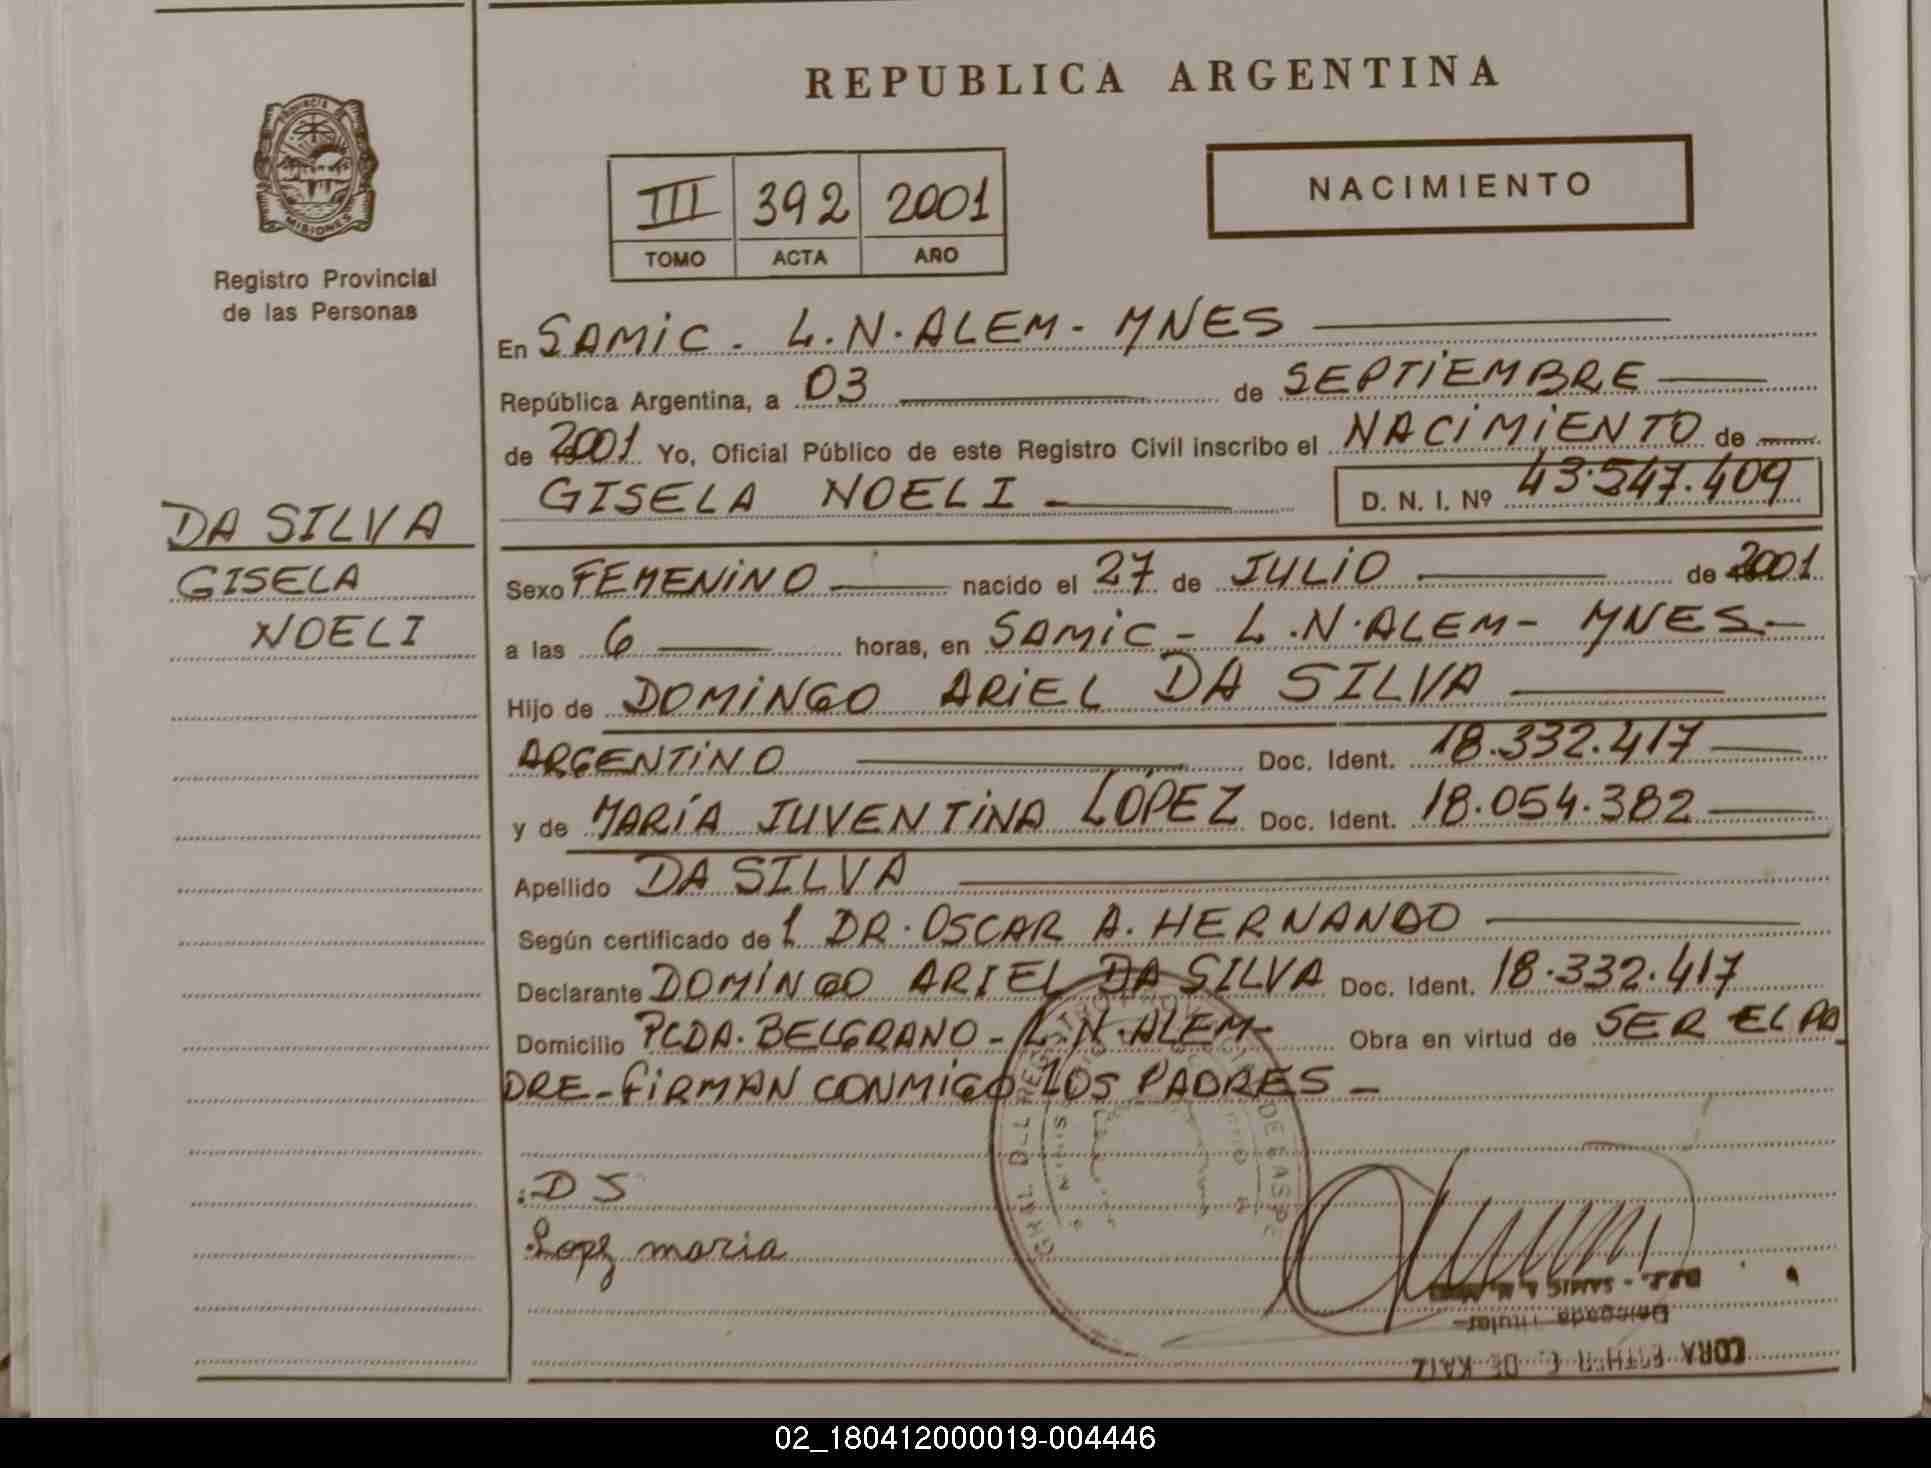 REPUBLICA ARGENTINA
PROVINCIA
MISIONES
Registro Provincial
de las Personas
III 392 2001
TOMO ACTA AÑO
NACIMIENTO
En SAMIC - L.N.ALEM - MNES
República Argentina, a 03 de SEPTIEMBRE
de 2001 Yo, Oficial Público de este Registro Civil inscribo el NACIMIENTO de
GISELA NOELI D. N. I. Nº 43.547.409
DA SILVA
GISELA
NOELI
Sexo FEMENINO nacido el 27 de JULIO de 2001
a las 6 horas, en SAMIC - L.N.ALEM - MNES -
Hijo de DOMINGO ARIEL DA SILVA
ARGENTINO Doc. Ident. 18.332.417
y de MARÍA JUVENTINA LÓPEZ Doc. Ident. 18.054.382
Apellido DA SILVA
Según certificado de 1 DR. OSCAR A. HERNANDO
Declarante DOMINGO ARIEL DA SILVA Doc. Ident. 18.332.417
Domicilio PCDA. BELGRANO - L.N.ALEM - Obra en virtud de SER EL PA
DRE - FIRMAN CONMIGO LOS PADRES -
D S
Lopz maria
Delegada Titular
CORA ESTHER C. DE KATZ
02_180412000019-004446